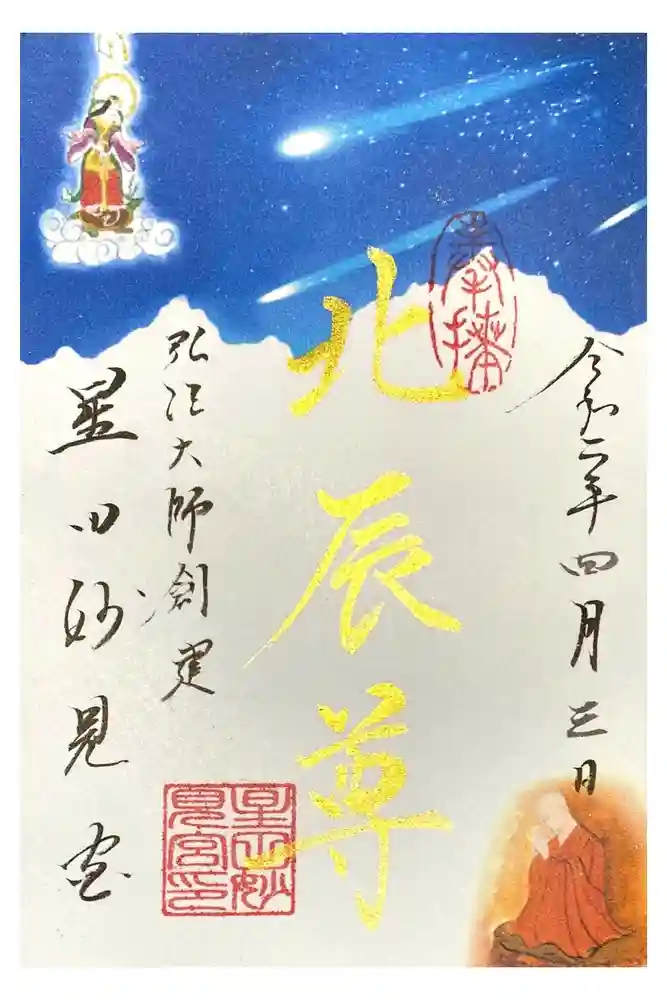 令和二年四月三日
奉拝
北辰尊
弘法大師創建
星田妙見宮
星田妙見宮印